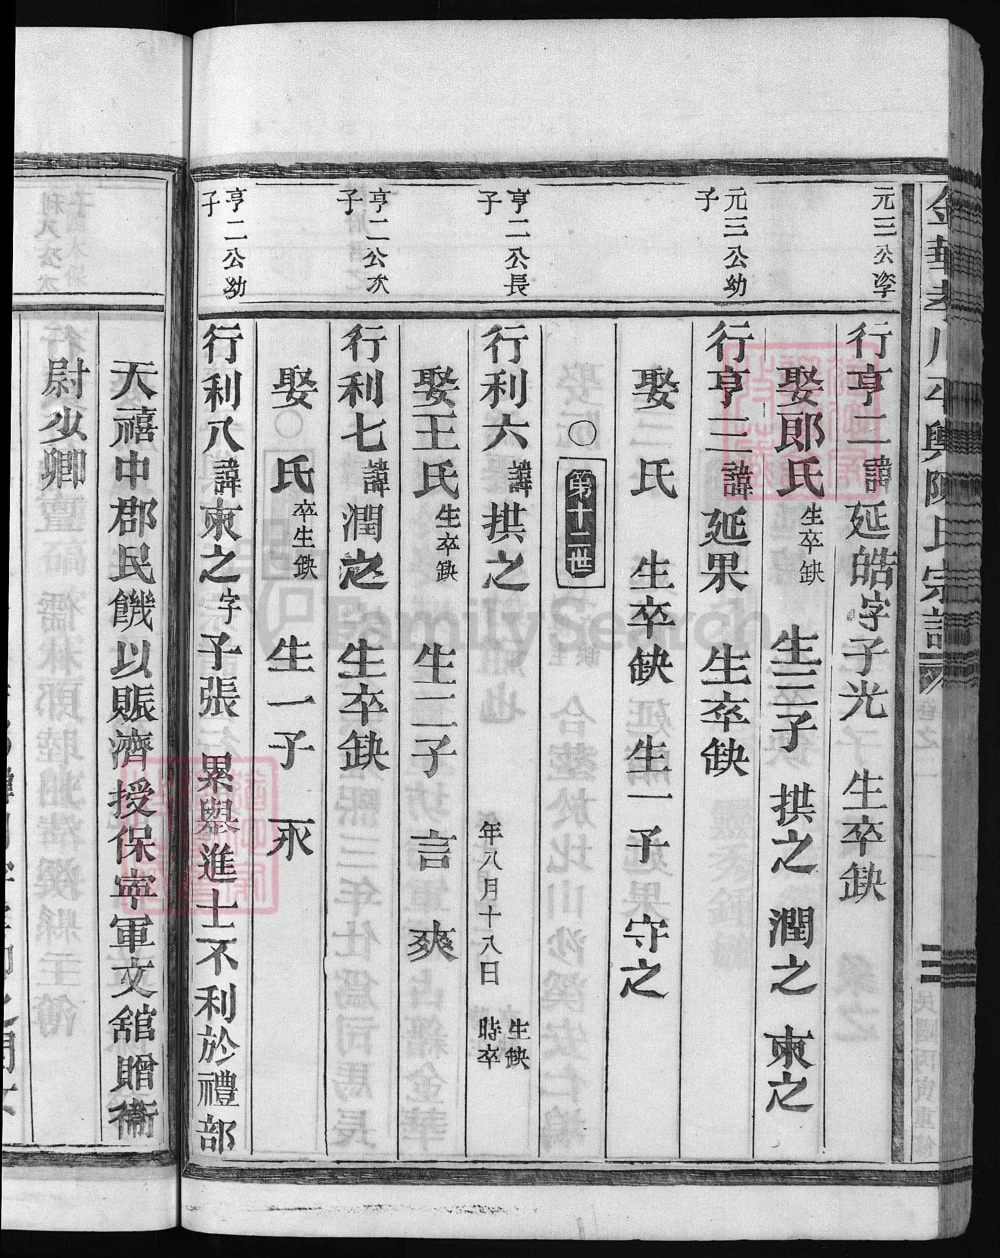 元三公季
行亨二諱延皓字子光 生卒缺
娶郎氏生卒缺 生三子 拱之 潤之 柬之
元三公幼子
行亨三諱延果 生卒缺
娶 氏 生卒缺 生一子 守之
○ 第十二世
亨二公長子
行利六諱拱之 年八月十八日 生缺 時卒
娶王氏生卒缺 生二子 言 爽
亨二公次子
行利七諱潤之 生卒缺
娶○氏卒生缺 生一子 永
亨二公幼子
行利八諱柬之字子張 累舉進士不利於禮部
天禧中郡民饑以賑濟授保寧軍文舘贈衞
尉少卿
陳氏宗譜 卷之二 民國丙寅重修
FamilySearch